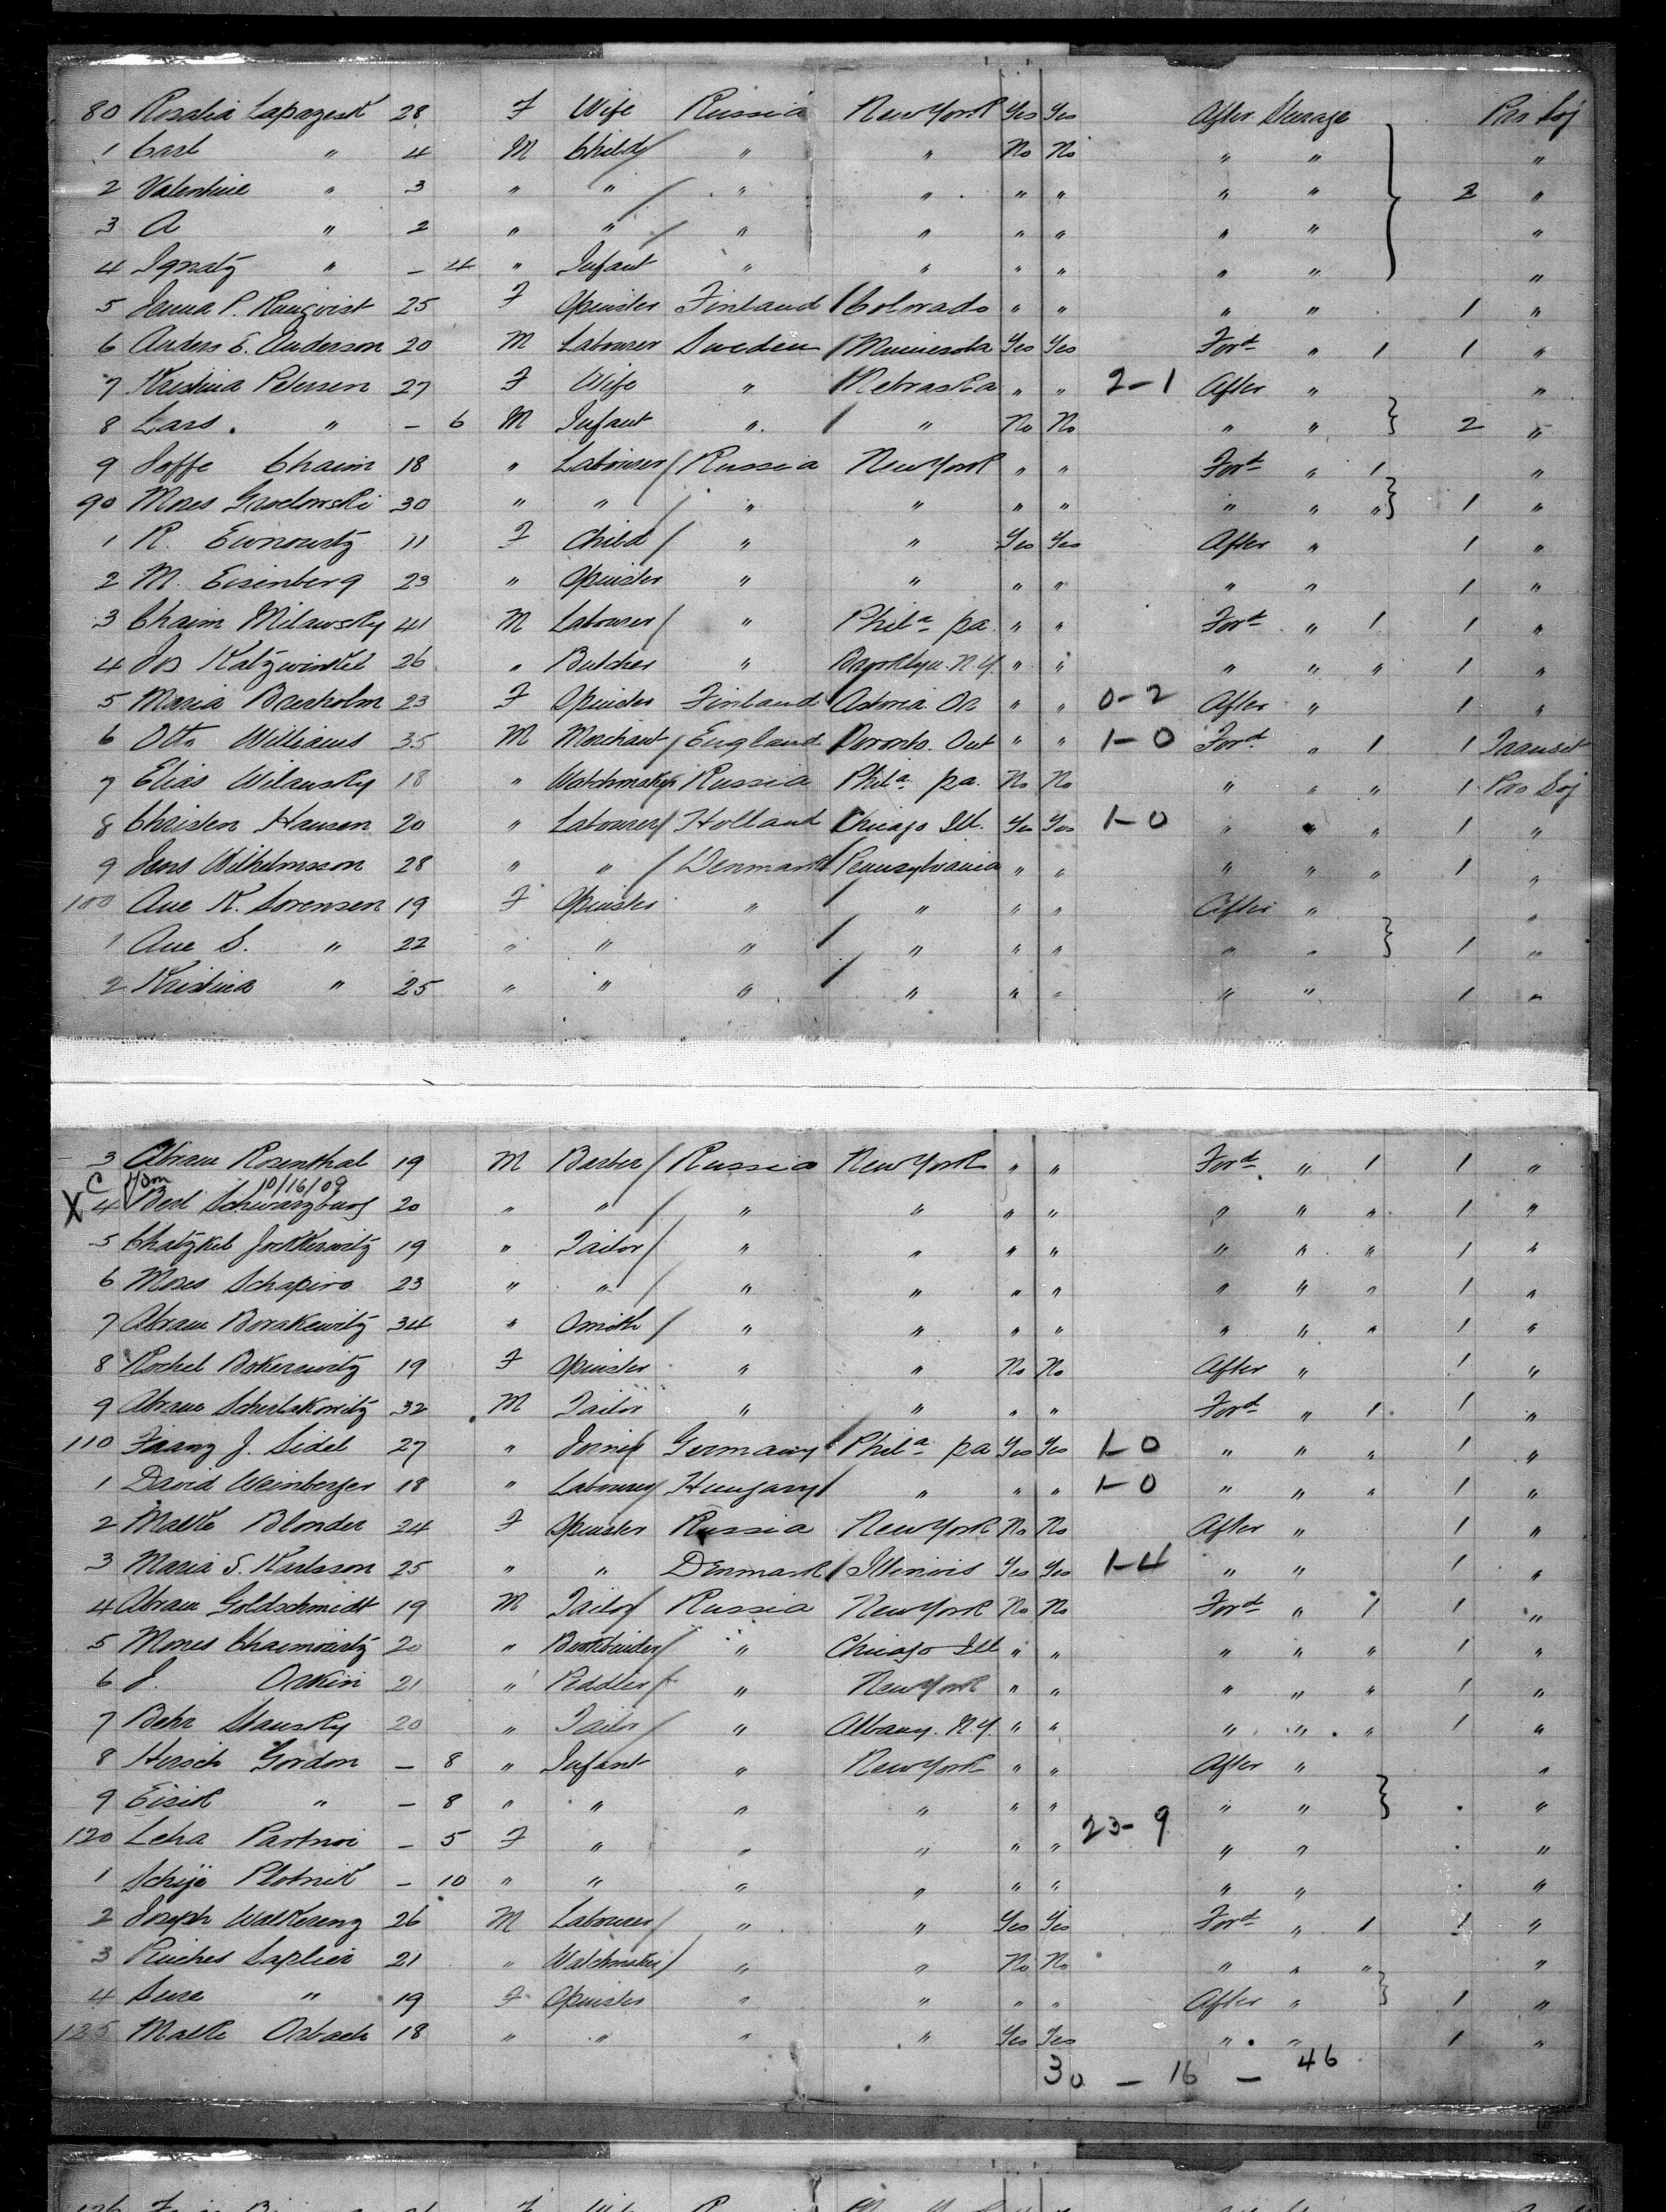 80 Rosalia Lapazesk 28 F Wife Russia New York Yes Yes After Steerage Pro Soj
1 Carl " 4 M Child " " No No " " "
2 Valentine " 3 " " " " " " " " 2 "
3 A " 2 " " " " " " " " "
4 Ignatz " - 4 " Infant " " " " " " "
5 25 F Spinster Finland Colorado " " " " 1 "
6 Anders E. Anderson 20 M Labourer Sweden Minnesota Yes Yes Ford " 1 1 "
7 Kristina Petersen 27 F Wife " Nebraska " " 2-1 After " "
8 Lars " - 6 M Infant " " No No " " 2 "
9 Joffe Chaim 18 " Labourer Russia New York " " Ford " 1 "
90 Moses Grodowski 30 " " " " " " " " " 1 "
1 R. 11 F Child " " Yes Yes After " 1 "
2 M. Eisenberg 23 " Spinster " " " " " " 1 "
3 Chaim Milawsky 41 M Labourer " Phila pa " " Ford " 1 1 "
4 Jos Katzwinkel 26 " Butcher " Brooklyn. N.Y. " " " " " 1 "
5 Maria 23 F Spinster Finland Astoria. Or " " 0-2 After " 1 "
6 Otto Williams 35 M Merchant England Toronto. Ont " " 1-0 Ford " 1 1 Transit
7 Elias Wilansky 18 " Watchmaker Russia Phila pa. No No " " " 1 Pro Soj
8 Christen Hansen 20 " Labourer Holland Chicago Ill. Yes Yes 1-0 " " " 1 "
9 Jens Wilhelmsson 28 " " Denmark Pennsylvania " " " " " 1 "
100 Ane K. Sorensen 19 F Spinster " " " " After " "
1 Ane S. " 22 " " " " " " " " 1 "
2 Kristina " 25 " " " " " " " " 1 "
3 Abram Rosenthal 19 M Barber Russia New York " " Ford " 1 1 "
C 10/16/09
X 4 Berl Schwarzburg 20 " " " " " " " " " 1 "
5 Chatzkel 19 " Tailor " " " " " " " 1 "
6 Moses Schapiro 23 " " " " " " " " " 1 "
7 Abram Borakewitz 34 " Smith " " " " " " " 1 "
8 Rochel 19 F Spinster " " No No After " 1 "
9 Abram 32 M Tailor " " " " Ford " 1 1 "
110 Franz J. Sidel 27 " Joiner Germany Phila pa Yes Yes 1-0 " " " 1 "
1 David Weinberger 18 " Labourer Hungary " " " 1-0 " " " 1 "
2 Malke Blonder 24 F Spinster Russia New York No No After " 1 "
3 Maria S. Karlsson 25 " " Denmark Illinois Yes Yes 1-4 " " 1 "
4 Abram Goldschmidt 19 M Tailor Russia New York No No Ford " 1 1 "
5 Moses Chaimowitz 20 " Bookbinder " Chicago Ill " " " " " 1 "
6 J. Orkin 21 " Peddler " New York " " " " " 1 "
7 Behr Slausky 20 " Tailor " Albany. N.Y. " " " " " 1 "
8 Hirsch Gordon - 8 " Infant " New York " " After " "
9 Eisik " - 8 " " " " " " " " "
120 Leha Partnoi - 5 F " " " " " 23-9 " " "
1 Schije Plotnik - 10 " " " " " " " " "
2 Joseph 26 M Labourer " " Yes Yes Ford " 1 1 "
3 21 " Watchmaker " " No No " " " "
4 " 19 F Spinster " " " " After " 1 "
125 Malke Orbach 18 " " " " Yes Yes " " 1 "
30 - 16 - 46